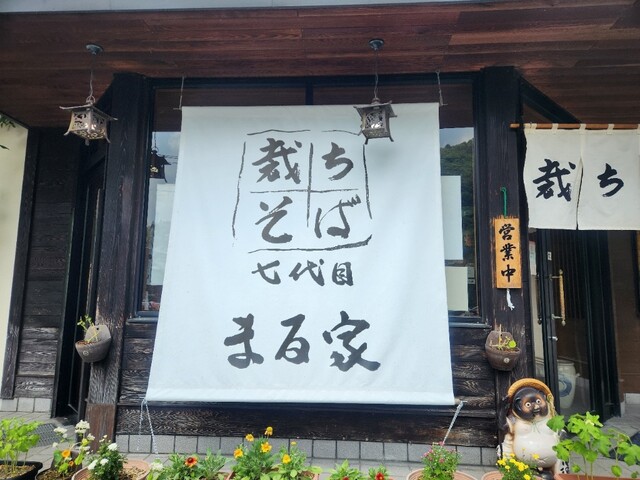 裁ち
そば
七代目
まる家
裁ち
営業中